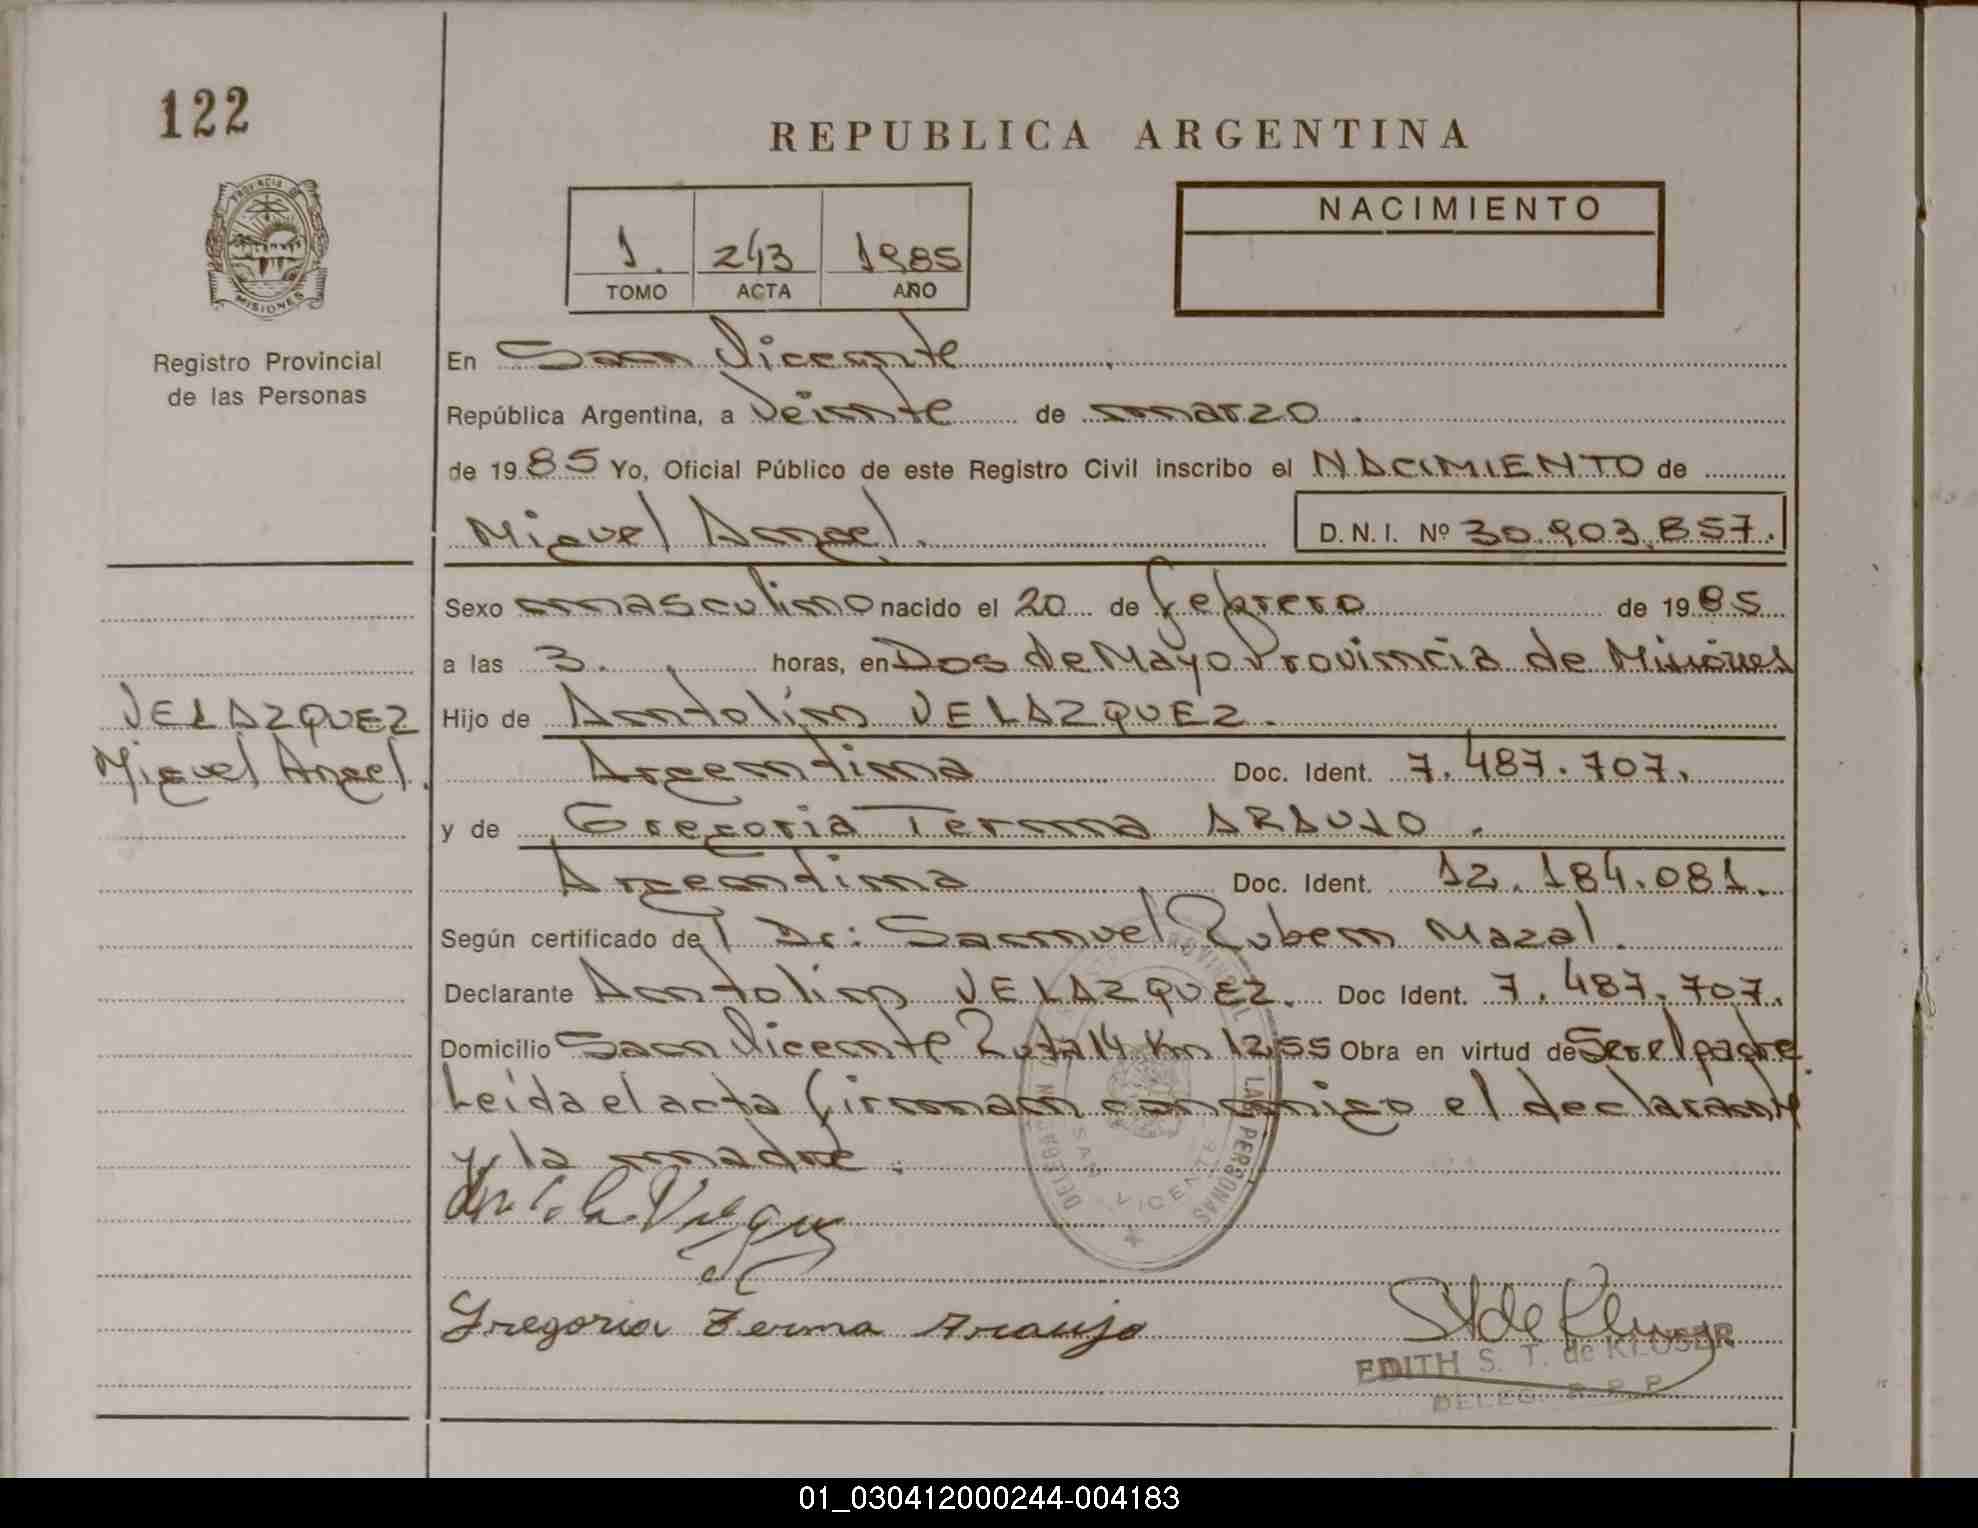 122
REPUBLICA ARGENTINA
PROVINCIA DE
MISIONES
Registro Provincial
de las Personas
1. 243 1985
TOMO ACTA AÑO
NACIMIENTO
En San Vicente
República Argentina, a Veinte de marzo
de 1985 Yo, Oficial Público de este Registro Civil inscribo el NACIMIENTO de
Miguel Angel. D.N.I. Nº 30.903.857.
Sexo masculino nacido el 20 de febrero de 1985
a las 3. horas, en Dos de Mayo Provincia de Misiones
VELAZQUEZ
Miguel Angel.
Hijo de Antolín VELAZQUEZ.
Argentina Doc. Ident. 7.487.707.
y de Gregoria Terma ARAUJO.
Argentina Doc. Ident. 12.184.081.
Según certificado del Dr: Samuel Ruben Mazal.
Declarante Antolin VELAZQUEZ. Doc Ident. 7.487.707.
Domicilio San Vicente Ruta 14 Km 1255 Obra en virtud de Ser el padre.
Leída el acta firman conmigo el declarante
y la madre.
LAS PERSONAS
SAN VICENTE
Gregoria Zerma Araujo
EDITH S. T. de KLUSER
DELEG. R. P. P.
01_030412000244-004183